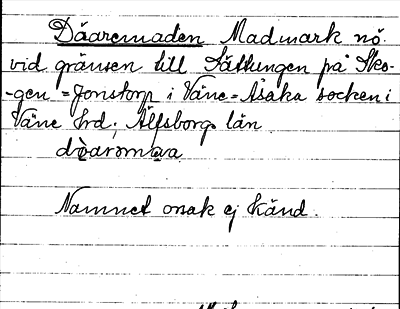 Dåaremaden Madmark nö.
vid gränsen till Kättungen på Sko-
-gen =Jonstorp i Väne=Åsaka socken i
Väne hrd, Älfsborgs län
Namnet orsak ej känd.